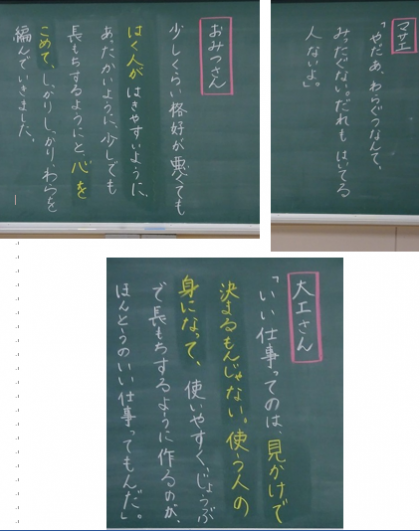 マサエ
「やだあ、わらぐつなんて、
みったぐない。だれもはいてる
人ないよ。」
おみつさん
少しくらい格好が悪くても
はく人がはきやすいように、
あたたかいように、少しでも
長もちするようにと、心を
こめて、しっかりしっかり、わらを
編んでいきました。
大工さん
「いい仕事ってのは、見かけで
決まるもんじゃない。使う人の
身になって、使いやすく、じょうぶ
で長もちするように作るのが、
ほんとうのいい仕事ってもんだ。」